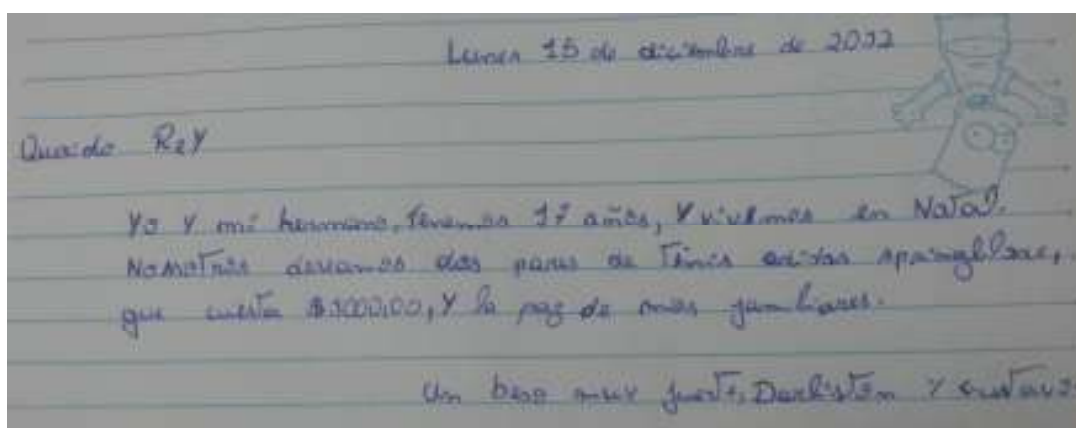 Lunes 15 de diciembre de 2022
Querido Rey
Yo Y mi hermano, Tenemos 17 años, Y vivemos en Natal.
Nosotros deseamos dos pares de Tênis adidas springblade,
que cuesta $1000,00, Y la paz de mis familiares.
Un beso muy fuerte, Y Gustavo